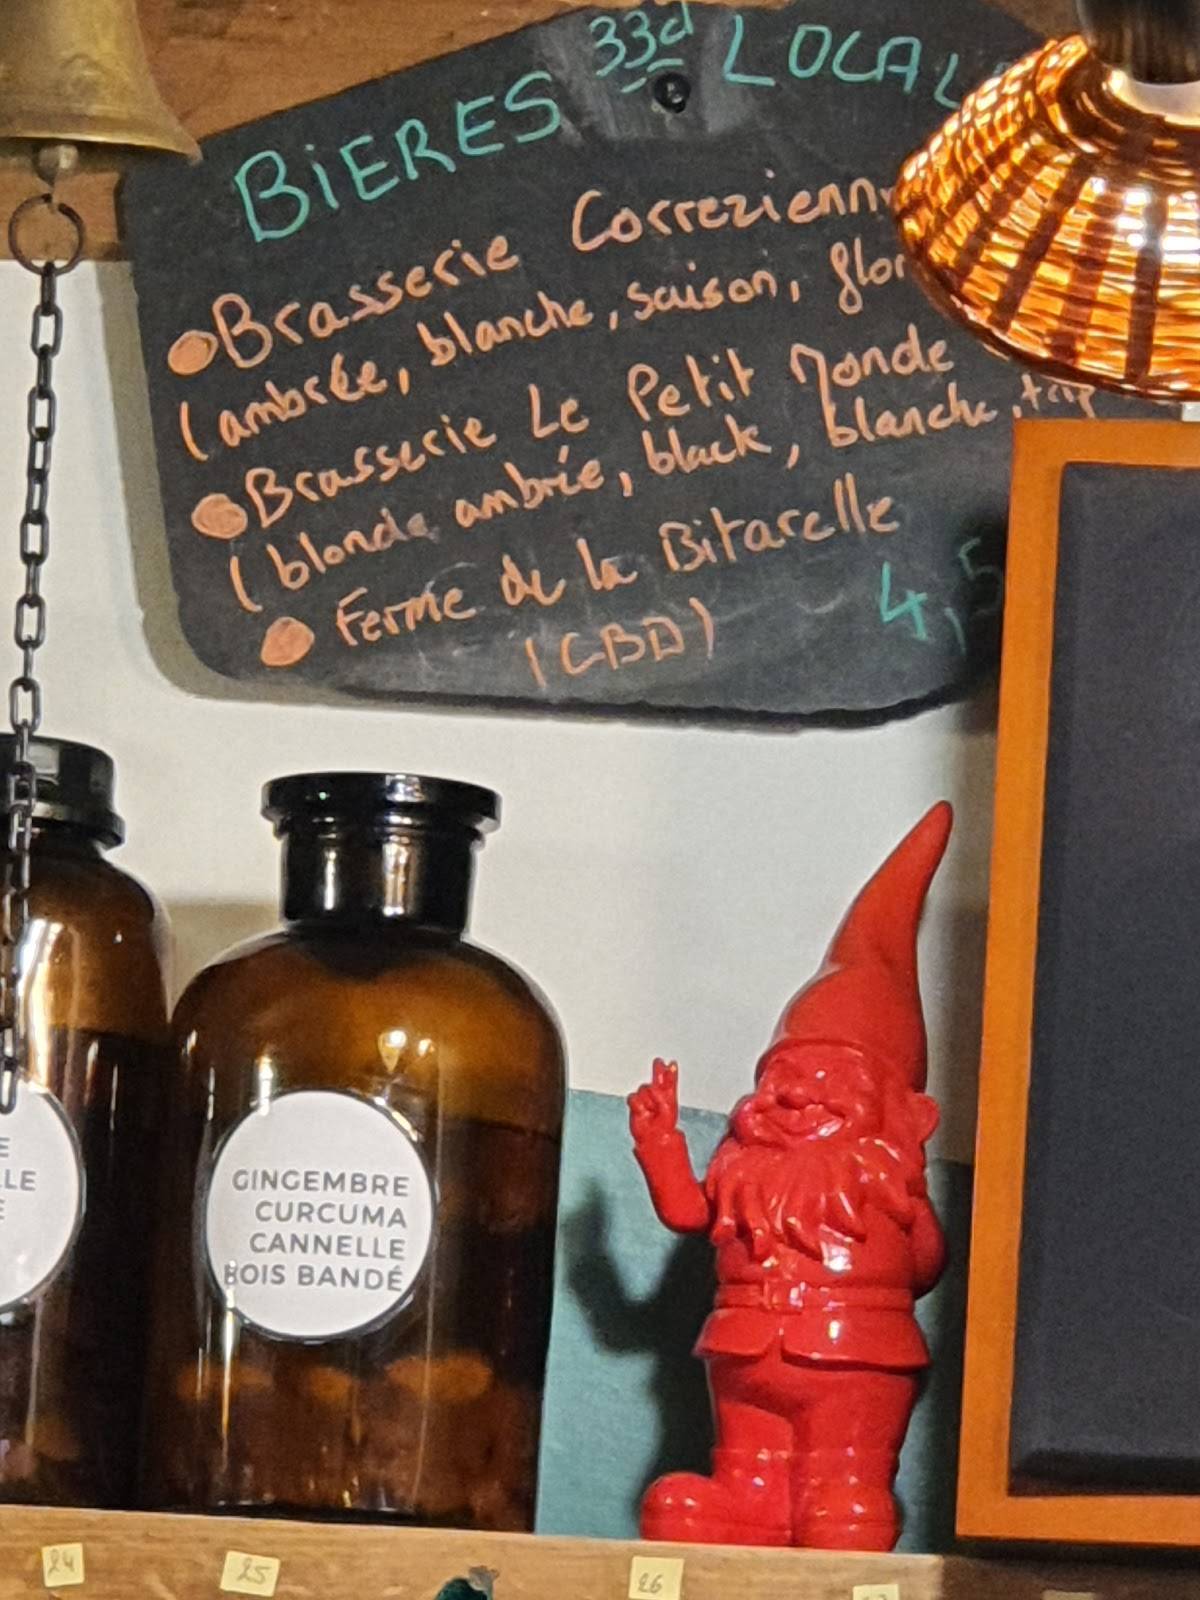 BIERES 33cl LOCAL
Brasserie Correzienn
(ambrée, blanche, saison,
Brasserie Le Petit Monde
(blonde ambrée, black, blanche,
Ferme de la Bitarelle
(CBD)
4,5
E
LLE
E
GINGEMBRE
CURCUMA
CANNELLE
BOIS BANDÉ
24
25
26